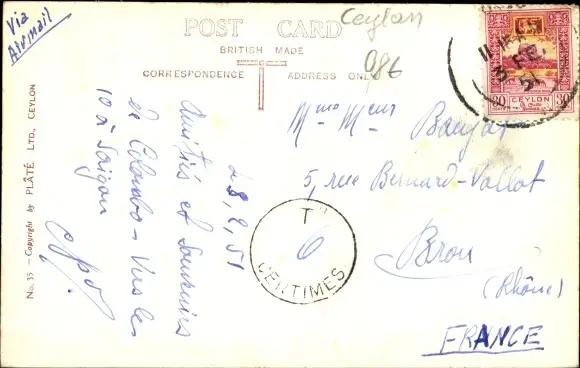 Via
Airmail
POST CARD
Ceylon
BRITISH MADE
986
CORRESPONDENCE
ADDRESS ONLY
No. 35 — Copyright by PLÂTÉ LTD., CEYLON
Amitiés et Souvenirs
de Colombo — Vers le
10 à Saigon
8, 2, 51
T
6
CENTIMES
11
FE
51
30 CEYLON 30
Mme Meur
5, rue Bernard-Vallot
Bron
(Rhône)
FRANCE